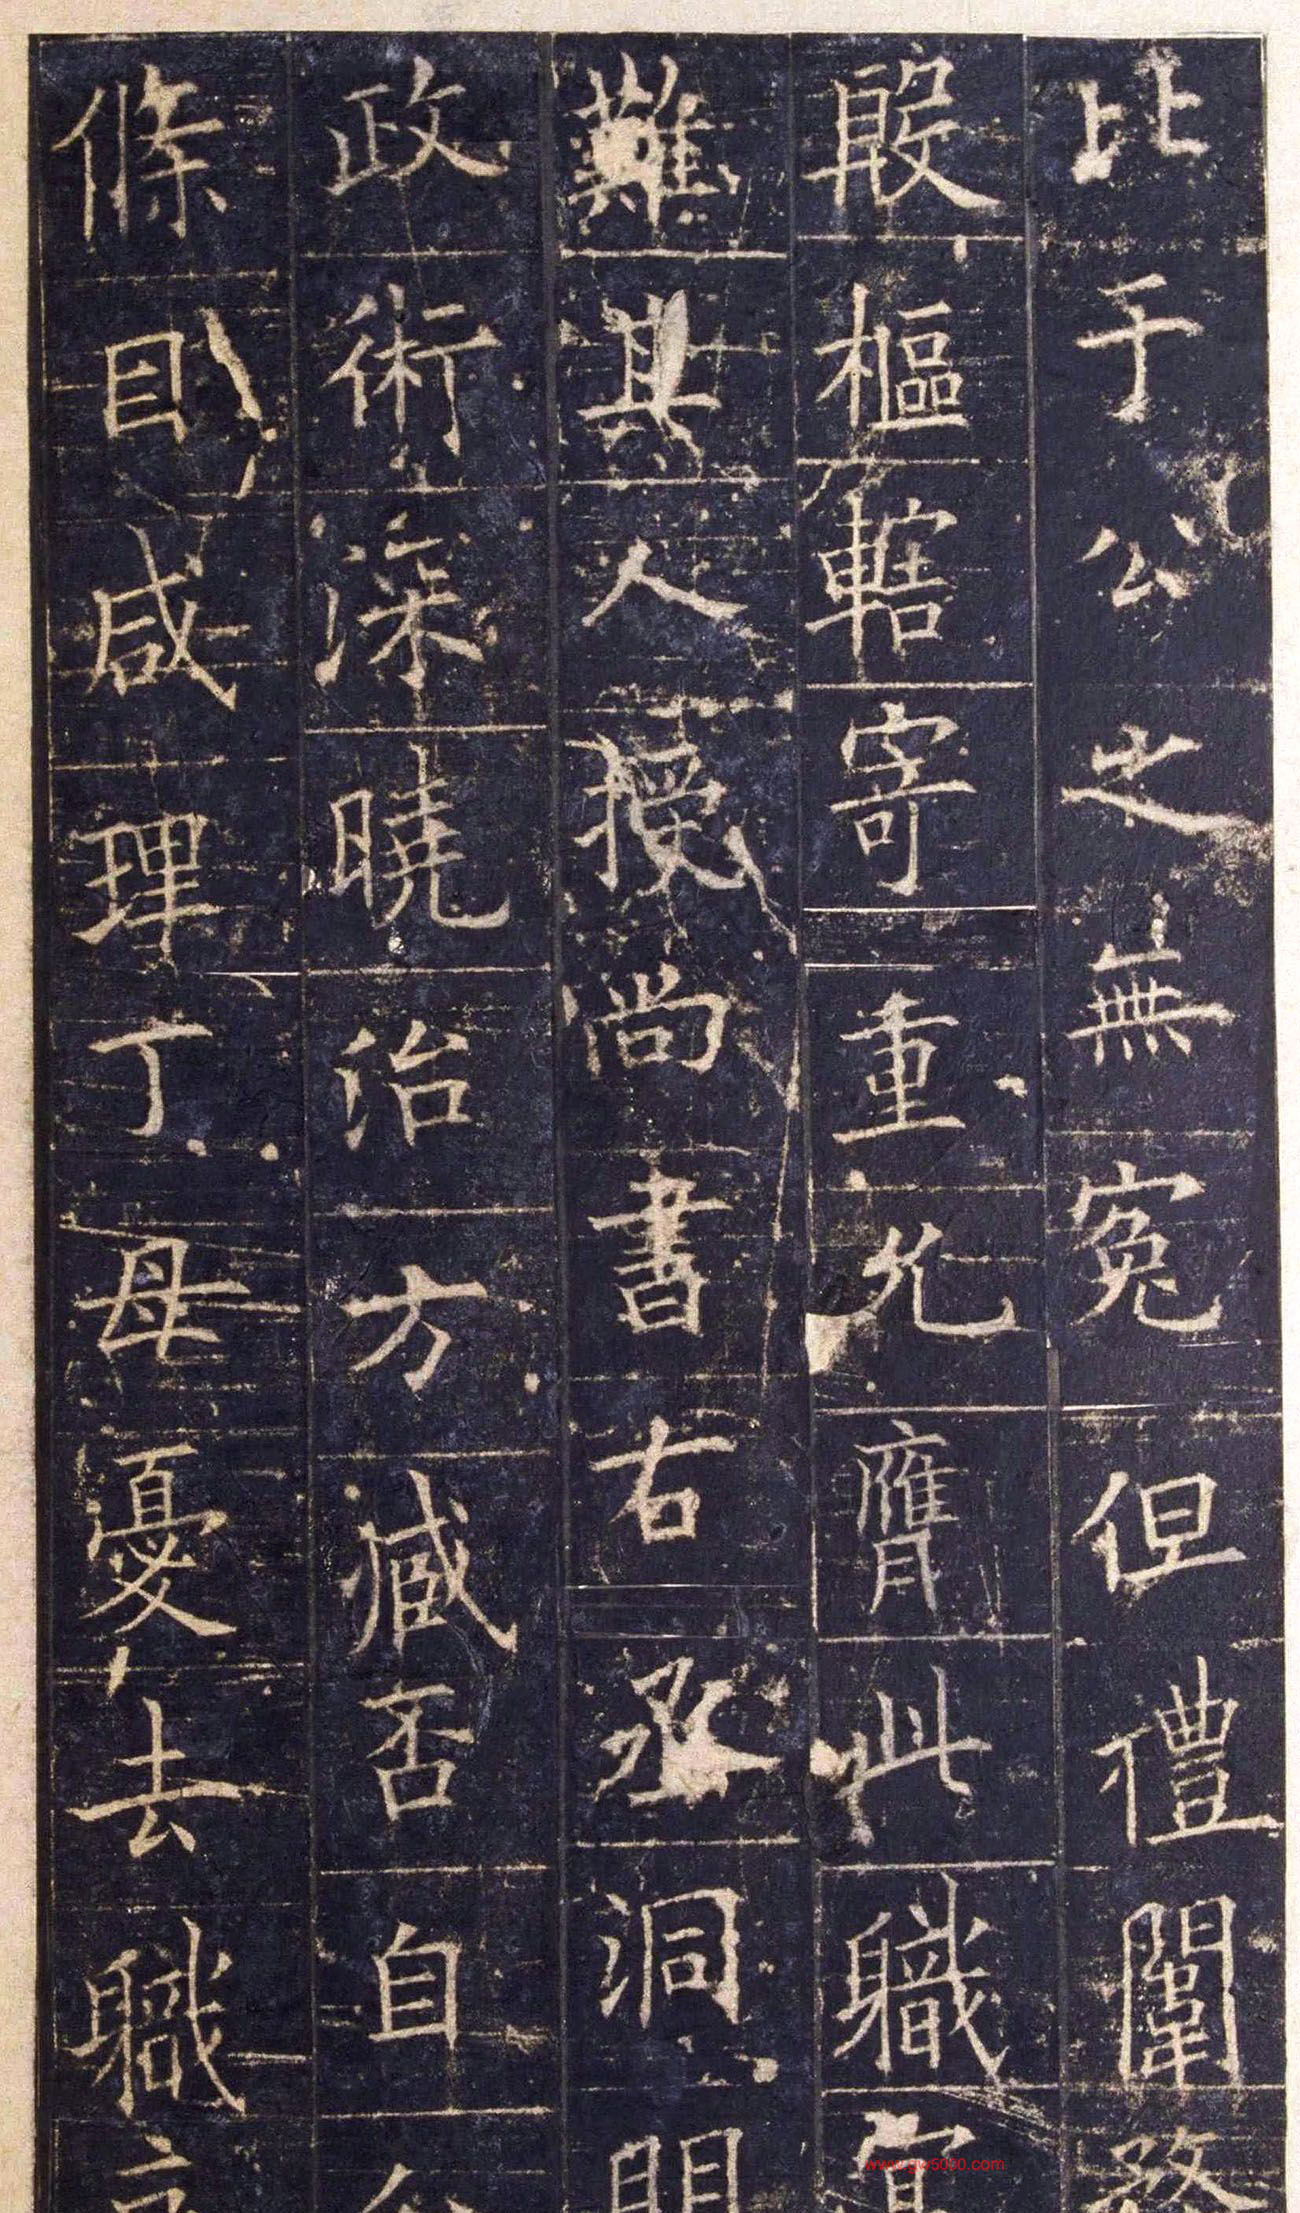 比于公之無寃但禮闈務
殷樞轄寄重允膺此職寔
難其人授尚書右丞洞閑
政術深曉治方臧否自
條目咸理丁母憂去職
www.gw5000.com